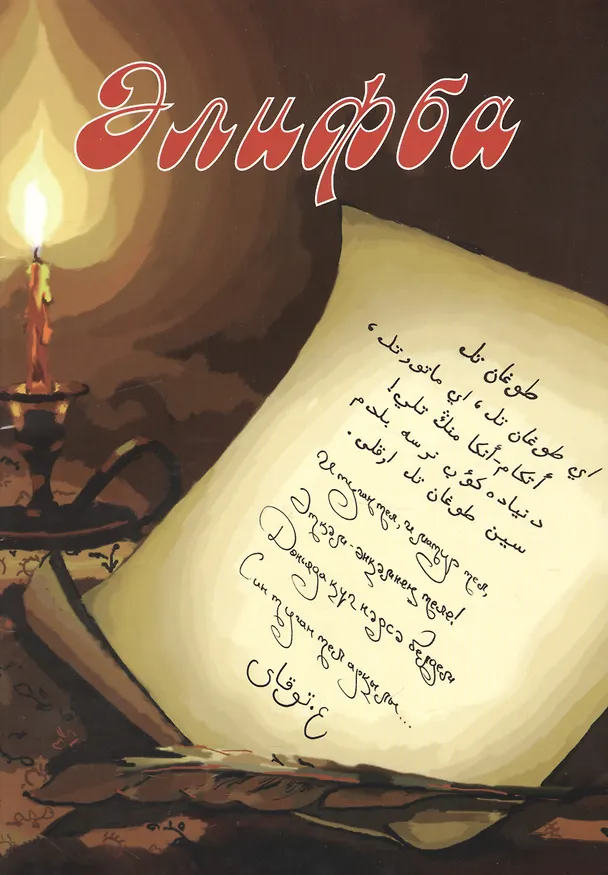 Әлифба
طوغان تل
اي طوغان تل، اي ماتور تل،
أتكام-أنكا منڭ تلي!
دنياده كوب نرسه بلدم
سين طوغان تل ارقلی.
И туган тел, и матур тел,
Әткәм-әнкәмнең теле!
Дөньяда күп нәрсә белдем
Син туган тел аркылы...
ع. توقای